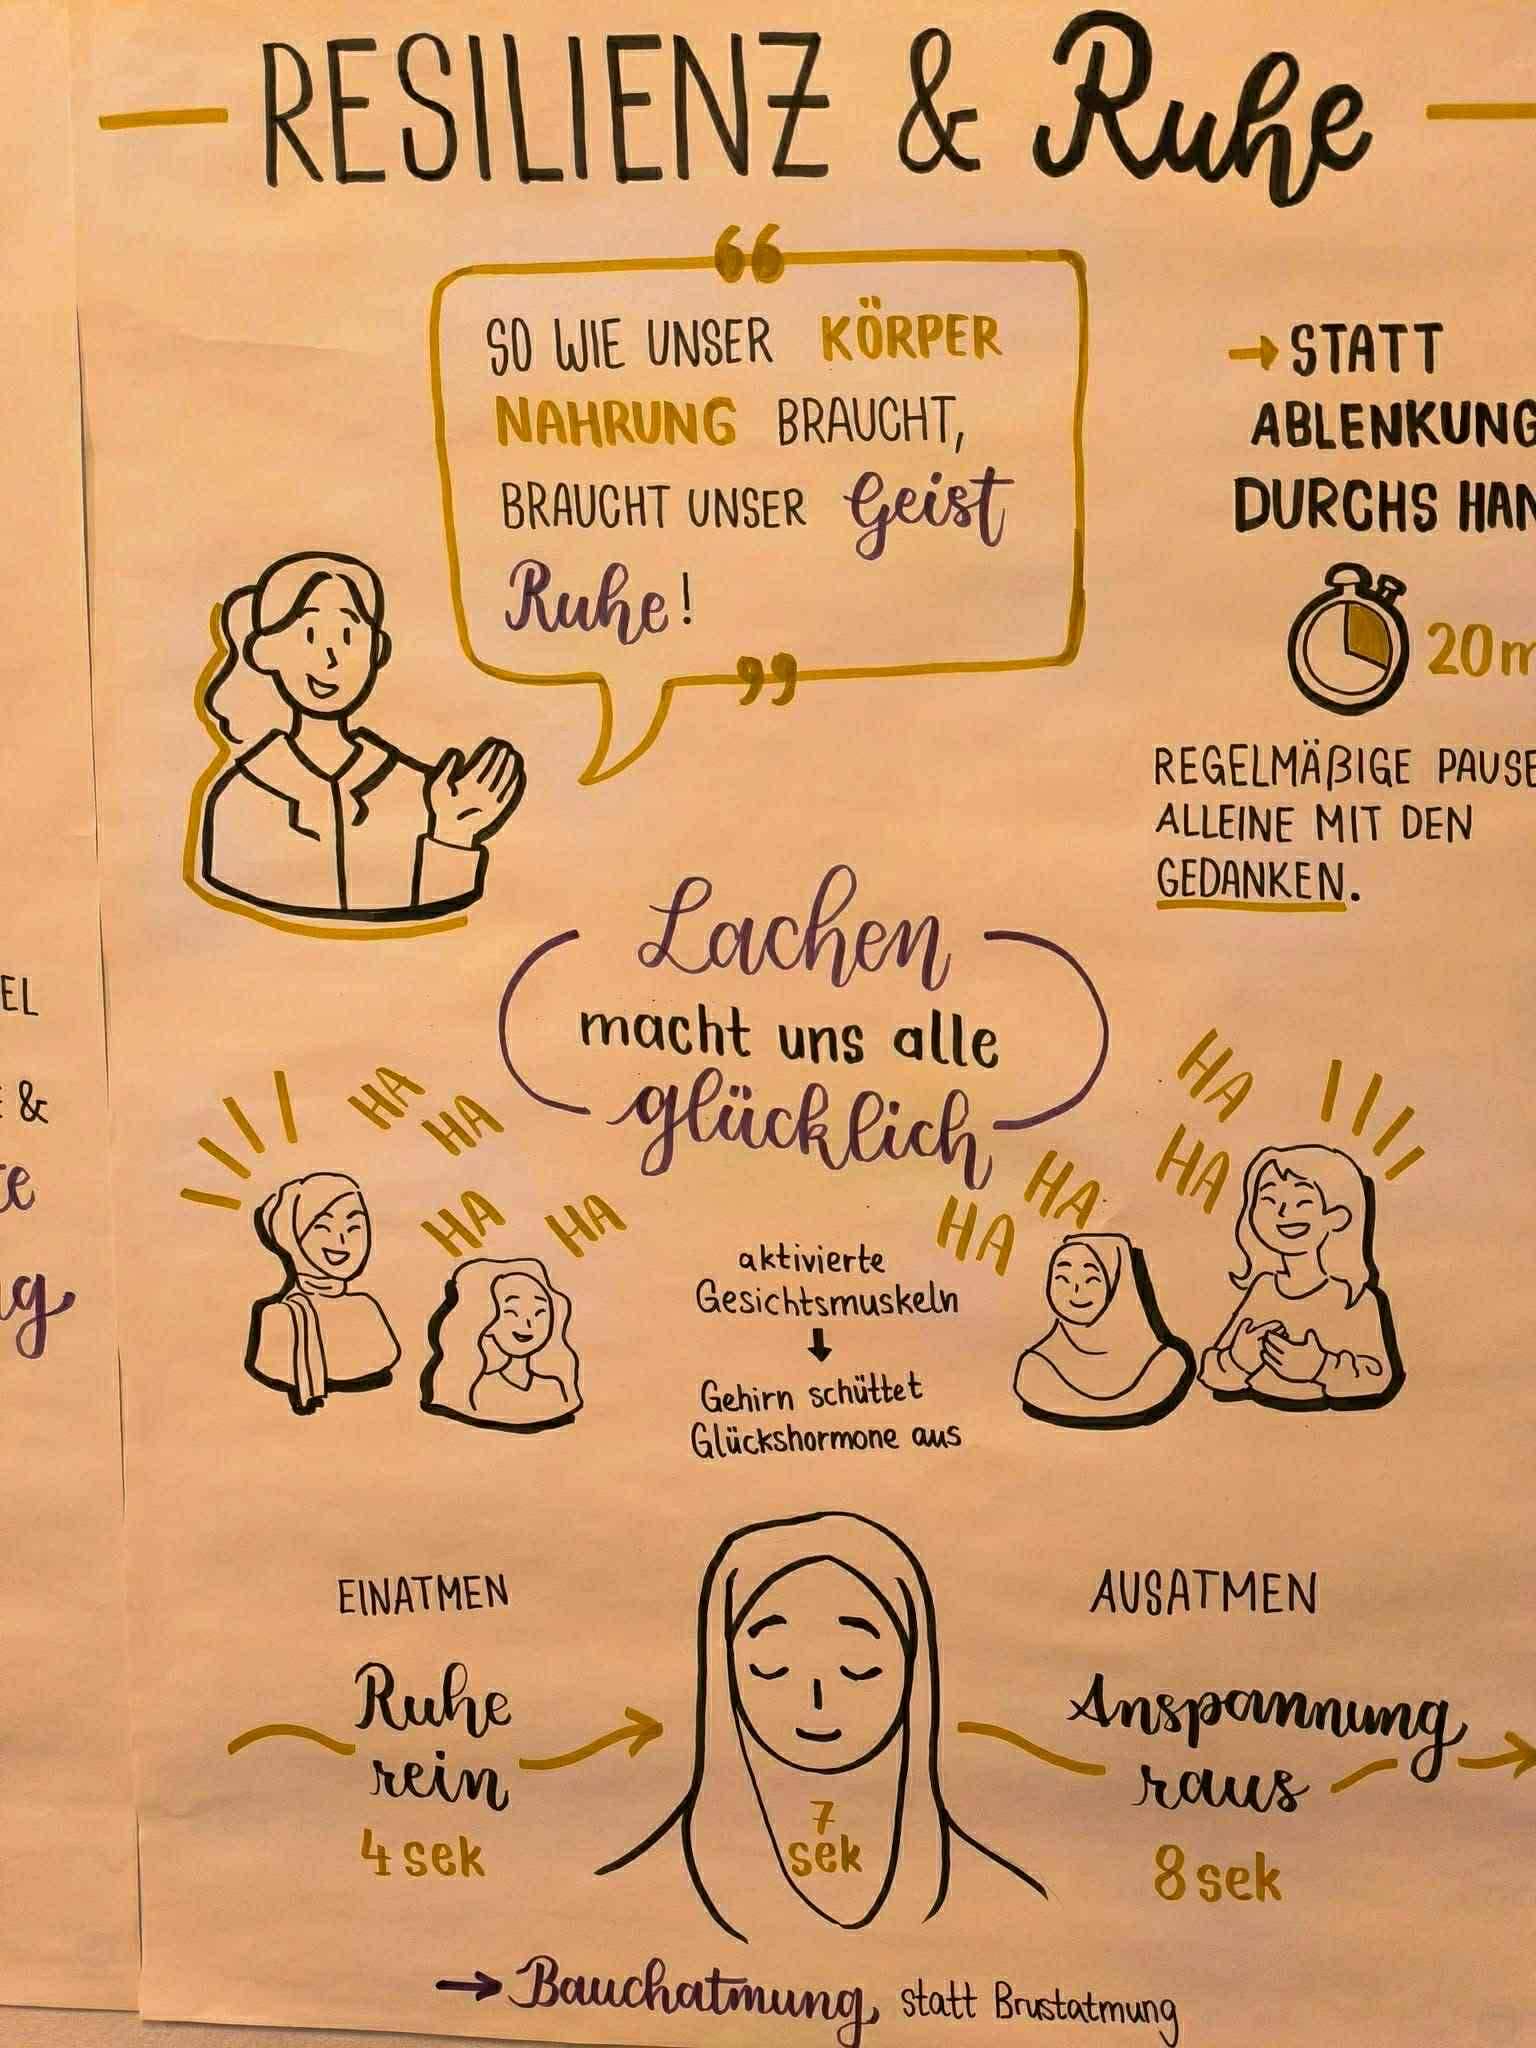 RESILIENZ & Ruhe
“
SO WIE UNSER KÖRPER
NAHRUNG BRAUCHT,
BRAUCHT UNSER Geist
Ruhe!
”
→ STATT
ABLENKUNG
DURCHS HAN
20 m
REGELMÄßIGE PAUSE
ALLEINE MIT DEN
GEDANKEN.
EL
&
Lachen
macht uns alle
glücklich
HA
HA
HA
HA
HA
HA
HA
HA
aktivierte
Gesichtsmuskeln
↓
Gehirn schüttet
Glückshormone aus
EINATMEN
Ruhe
rein
4 sek
7
sek
AUSATMEN
Anspannung
raus
8 sek
→ Bauchatmung, statt Brustatmung